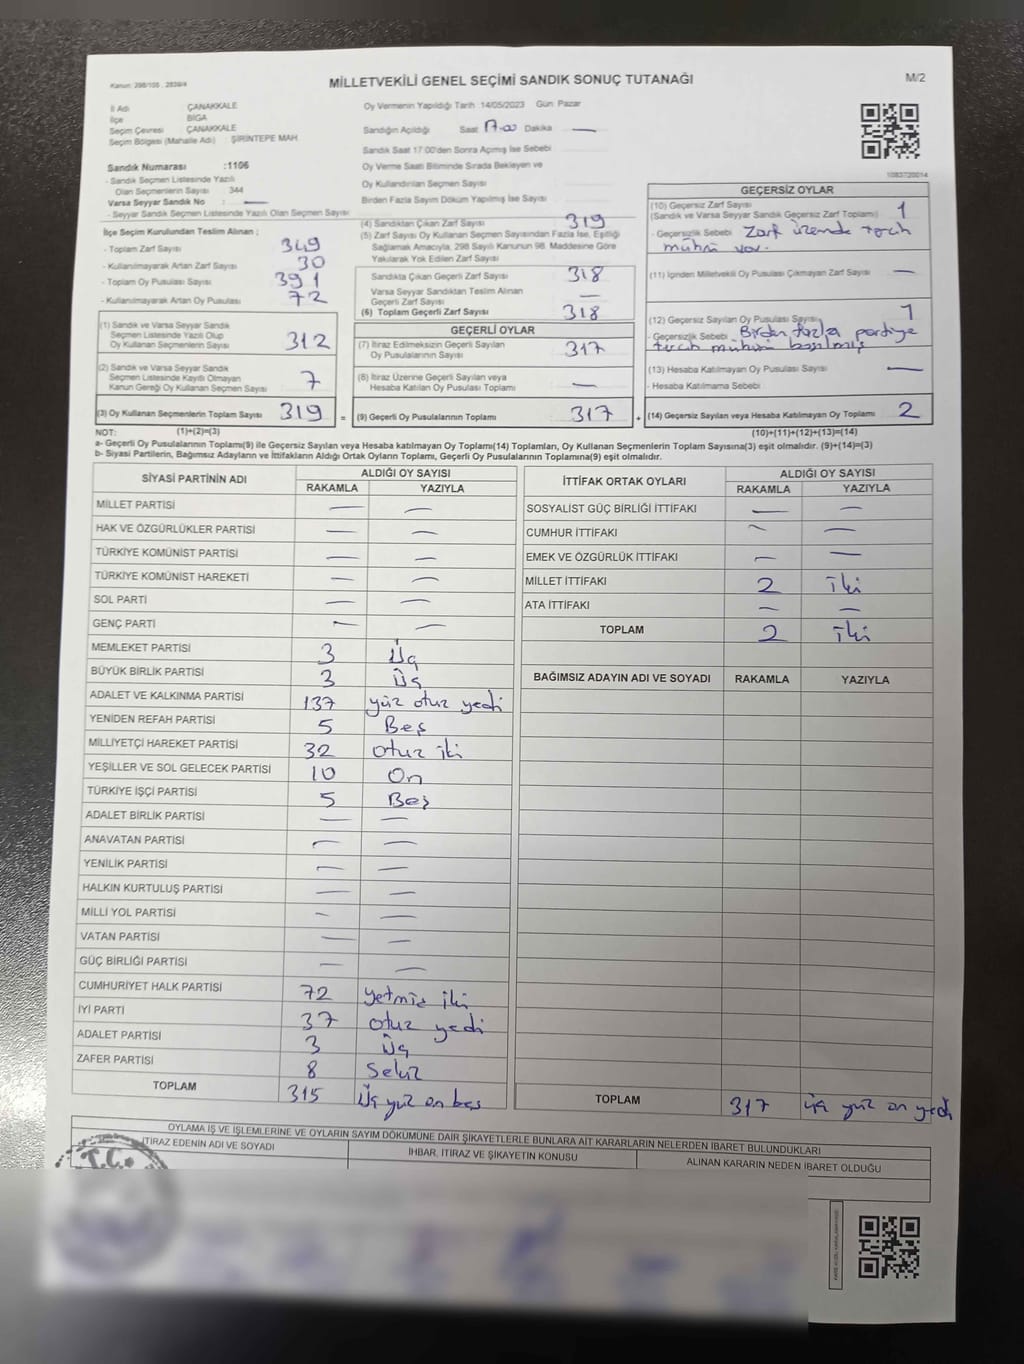 Kanun: 298/105 , 2839/4
MİLLETVEKİLİ GENEL SEÇİMİ SANDIK SONUÇ TUTANAĞI
M/2
İl Adı ÇANAKKALE
İlçe BİGA
Seçim Çevresi ÇANAKKALE
Seçim Bölgesi (Mahalle Adı) ŞİRİNTEPE MAH.
Sandık Numarası :1106
- Sandık Seçmen Listesinde Yazılı
Olan Seçmenlerin Sayısı : 344
Varsa Seyyar Sandık No : —
- Seyyar Sandık Seçmen Listesinde Yazılı Olan Seçmen Sayısı
İlçe Seçim Kurulundan Teslim Alınan ;
- Toplam Zarf Sayısı 349
- Kullanılmayarak Artan Zarf Sayısı 30
- Toplam Oy Pusulası Sayısı 391
- Kullanılmayarak Artan Oy Pusulası 72
(1) Sandık ve Varsa Seyyar Sandık
Seçmen Listesinde Yazılı Olup
Oy Kullanan Seçmenlerin Sayısı 312
(2) Sandık ve Varsa Seyyar Sandık
Seçmen Listesinde Kayıtlı Olmayan
Kanun Gereği Oy Kullanan Seçmen Sayısı 7
(3) Oy Kullanan Seçmenlerin Toplam Sayısı 319 =
Oy Vermenin Yapıldığı Tarih :14/05/2023 Gün: Pazar
Sandığın Açıldığı Saat 17-00 Dakika —
Sandık Saat 17:00'den Sonra Açımış İse Sebebi
Oy Verme Saati Bitiminde Sırada Bekleyen ve
Oy Kullandırılan Seçmen Sayısı
Birden Fazla Sayım Döküm Yapılmış İse Sayısı
(4) Sandıktan Çıkan Zarf Sayısı 319
(5) Zarf Sayısı Oy Kullanan Seçmen Sayısından Fazla İse, Eşitliği
Sağlamak Amacıyla, 298 Sayılı Kanunun 98. Maddesine Göre
Yakılarak Yok Edilen Zarf Sayısı
Sandıkta Çıkan Geçerli Zarf Sayısı 318
Varsa Seyyar Sandıktan Teslim Alınan
Geçerli Zarf Sayısı —
(6) Toplam Geçerli Zarf Sayısı 318
GEÇERLİ OYLAR
(7) İtiraz Edilmeksizin Geçerli Sayılan
Oy Pusulalarının Sayısı 317
(8) İtiraz Üzerine Geçerli Sayılan veya
Hesaba Katılan Oy Pusulası Toplamı —
(9) Geçerli Oy Pusulalarının Toplamı 317 +
1083720014
GEÇERSİZ OYLAR
(10) Geçersiz Zarf Sayısı
(Sandık ve Varsa Seyyar Sandık Geçersiz Zarf Toplamı) 1
- Geçersizlik Sebebi Zarf üzerinde tercih
mührü var.
(11) İçinden Milletvekili Oy Pusulası Çıkmayan Zarf Sayısı —
(12) Geçersiz Sayılan Oy Pusulası Sayısı 1
- Geçersizlik Sebebi Birden fazla partiye
tercih mührü basılmış
(13) Hesaba Katılmayan Oy Pusulası Sayısı —
- Hesaba Katılmama Sebebi
(14) Geçersiz Sayılan veya Hesaba Katılmayan Oy Toplamı 2
NOT: (1)+(2)=(3)
(10)+(11)+(12)+(13)=(14)
a- Geçerli Oy Pusulalarının Toplamı(9) ile Geçersiz Sayılan veya Hesaba katılmayan Oy Toplamı(14) Toplamları, Oy Kullanan Seçmenlerin Toplam Sayısına(3) eşit olmalıdır. (9)+(14)=(3)
b- Siyasi Partilerin, Bağımsız Adayların ve İttifakların Aldığı Ortak Oyların Toplamı, Geçerli Oy Pusulalarının Toplamına(9) eşit olmalıdır.
SİYASİ PARTİNİN ADI ALDIĞI OY SAYISI
RAKAMLA YAZIYLA
MİLLET PARTİSİ — —
HAK VE ÖZGÜRLÜKLER PARTİSİ — —
TÜRKİYE KOMÜNİST PARTİSİ — —
TÜRKİYE KOMÜNİST HAREKETİ — —
SOL PARTİ — —
GENÇ PARTİ — —
MEMLEKET PARTİSİ 3 Üç
BÜYÜK BİRLİK PARTİSİ 3 Üç
ADALET VE KALKINMA PARTİSİ 137 yüz otuz yedi
YENİDEN REFAH PARTİSİ 5 Beş
MİLLİYETÇİ HAREKET PARTİSİ 32 otuz iki
YEŞİLLER VE SOL GELECEK PARTİSİ 10 On
TÜRKİYE İŞÇİ PARTİSİ 5 Beş
ADALET BİRLİK PARTİSİ — —
ANAVATAN PARTİSİ — —
YENİLİK PARTİSİ — —
HALKIN KURTULUŞ PARTİSİ — —
MİLLİ YOL PARTİSİ — —
VATAN PARTİSİ — —
GÜÇ BİRLİĞİ PARTİSİ — —
CUMHURİYET HALK PARTİSİ 72 yetmiş iki
İYİ PARTİ 37 otuz yedi
ADALET PARTİSİ 3 Üç
ZAFER PARTİSİ 8 Sekiz
TOPLAM 315 Üç yüz on beş
İTTİFAK ORTAK OYLARI ALDIĞI OY SAYISI
RAKAMLA YAZIYLA
SOSYALİST GÜÇ BİRLİĞİ İTTİFAKI — —
CUMHUR İTTİFAKI — —
EMEK VE ÖZGÜRLÜK İTTİFAKI — —
MİLLET İTTİFAKI 2 İki
ATA İTTİFAKI — —
TOPLAM 2 İki
BAĞIMSIZ ADAYIN ADI VE SOYADI RAKAMLA YAZIYLA
TOPLAM 317 üç yüz on yedi
OYLAMA İŞ VE İŞLEMLERİNE VE OYLARIN SAYIM DÖKÜMÜNE DAİR ŞİKAYETLERLE BUNLARA AİT KARARLARIN NELERDEN İBARET BULUNDUKLARI
İTİRAZ EDENİN ADI VE SOYADI İHBAR, İTİRAZ VE ŞİKAYETİN KONUSU ALINAN KARARIN NEDEN İBARET OLDUĞU
T.C.